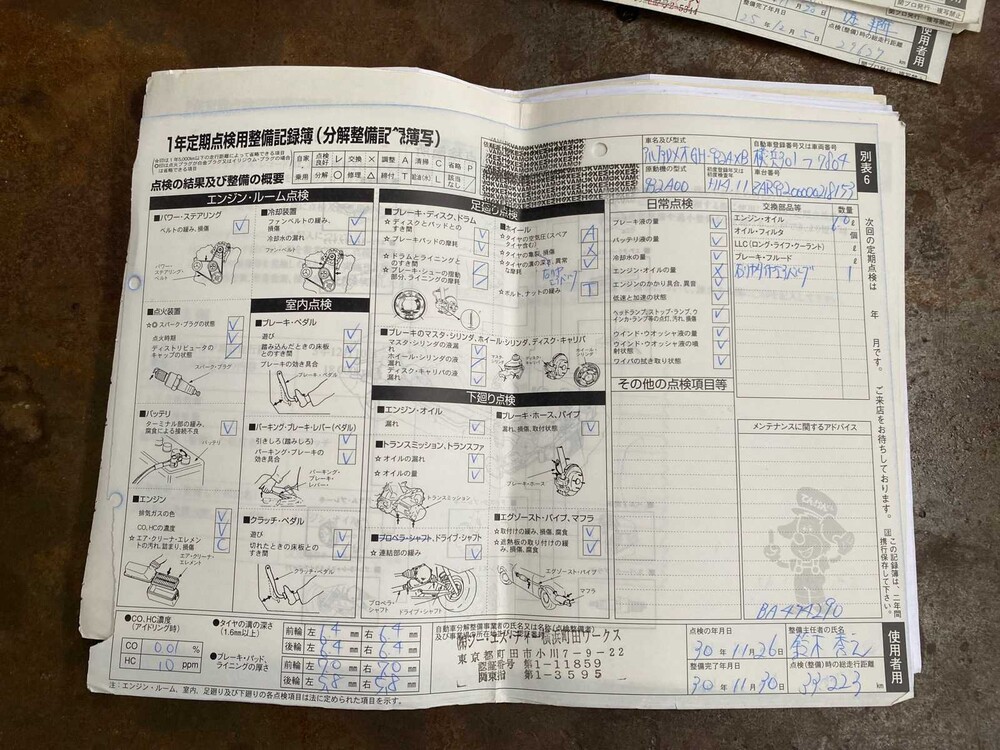 整備完了年月日
25年12月5日
点検(整備)時の総走行距離
29637
使用者用
1年定期点検用整備記録簿(分解整備記録簿写)
自家・乗用
点検良好 レ
交換 ×
調整 A
清掃 C
省略 P
分解 ○
修理 △
締付 T
給油(水) L
該当なし ／
点検の結果及び整備の概要
車名及び型式
自動車登録番号又は車両番号
GH-932AXB
原動機の型式
初度登録年又は初度検査年
車台番号
932A00
H14.11
別表6
エンジン・ルーム点検
■パワー・ステアリング
ベルトの緩み、損傷
パワー・ステアリング・ベルト
■冷却装置
ファンベルトの緩み、損傷
冷却水の漏れ
ファン・ベルト
■点火装置
☆◎スパーク・プラグの状態
点火時期
ディストリビュータのキャップの状態
スパーク・プラグ
■バッテリ
ターミナル部の緩み、腐食による接続不良
バッテリ
■エンジン
排気ガスの色
CO,HCの濃度
☆エア・クリーナ・エレメントの汚れ、詰まり、損傷 C
エア・クリーナ・エレメント
室内点検
■ブレーキ・ペダル
遊び
踏み込んだときの床板とのすき間
ブレーキの効き具合
ブレーキ・ペダル
■パーキング・ブレーキ・レバー(ペダル)
引きしろ(踏みしろ)
パーキング・ブレーキの効き具合
パーキング・ブレーキ・レバー
■クラッチ・ペダル
遊び
切れたときの床板とのすき間
クラッチ・ペダル
足廻り点検
■ブレーキ・ディスク、ドラム
☆ディスクとパッドとのすき間
☆ブレーキパッドの摩耗
☆ドラムとライニングとのすき間
☆ブレーキ・シューの摺動部分、ライニングの摩耗
■ホイール
☆タイヤの空気圧(スペアタイヤ含む) A
☆タイヤの亀裂、損傷
☆タイヤの溝の深さ、異常な摩耗
☆ボルト、ナットの緩み T
■ブレーキのマスタ・シリンダ、ホイール・シリンダ、ディスク・キャリパ
マスタ・シリンダの液漏れ
ホイール・シリンダの液漏れ
ディスク・キャリパの液漏れ
下廻り点検
■エンジン・オイル
漏れ
■トランスミッション、トランスファ
☆オイルの漏れ
☆オイルの量
トランスミッション
■プロペラ・シャフト、ドライブ・シャフト
☆連結部の緩み
プロペラ・シャフト
ドライブ・シャフト
■ブレーキ・ホース、パイプ
漏れ、損傷、取付状態
ブレーキ・ホース
■エグゾースト・パイプ、マフラ
☆取付けの緩み、損傷、腐食
☆遮熱板の取り付けの緩み、損傷、腐食
エグゾースト・パイプ
マフラ
日常点検
ブレーキ液の量
バッテリ液の量
冷却水の量
エンジン・オイルの量
エンジンのかかり具合、異音
低速と加速の状態
ヘッドランプ、ストップ・ランプ、ウインカ・ランプ等の点灯、汚れ、損傷
ウインド・ウオッシャ液の量
ウインド・ウオッシャ液の噴射状態
ワイパの拭き取り状態
その他の点検項目等
交換部品等
数量
エンジン・オイル
オイル・フィルタ
LLC(ロング・ライフ・クーラント)
ブレーキ・フルード
1
メンテナンスに関するアドバイス
BA474290
次回の定期点検は 年 月です。 ご来店をお待ちしております。
この記録簿は、二年間携行保存して下さい。
●CO,HC濃度(アイドリング時)
CO 0.01 %
HC 10 ppm
●タイヤの溝の深さ(1.6mm以上)
前輪 左 6.4 mm 右 6.4 mm
後輪 左 6.4 mm 右 6.4 mm
●ブレーキ・パッド、ライニングの厚さ
前輪 左 7.0 mm 右 7.0 mm
後輪 左 5.8 mm 右 5.8 mm
横浜町田ワークス
東京都町田市小川7-9-22
認証番号 第1-11859
関東指 第1-3595
点検の年月日
30年11月26日
整備主任者の氏名
整備完了年月日
30年11月30日
点検(整備)時の総走行距離
39223 km
使用者用
注:エンジン・ルーム、室内、足廻り及び下廻りの各点検項目は法に定められた項目を示す。